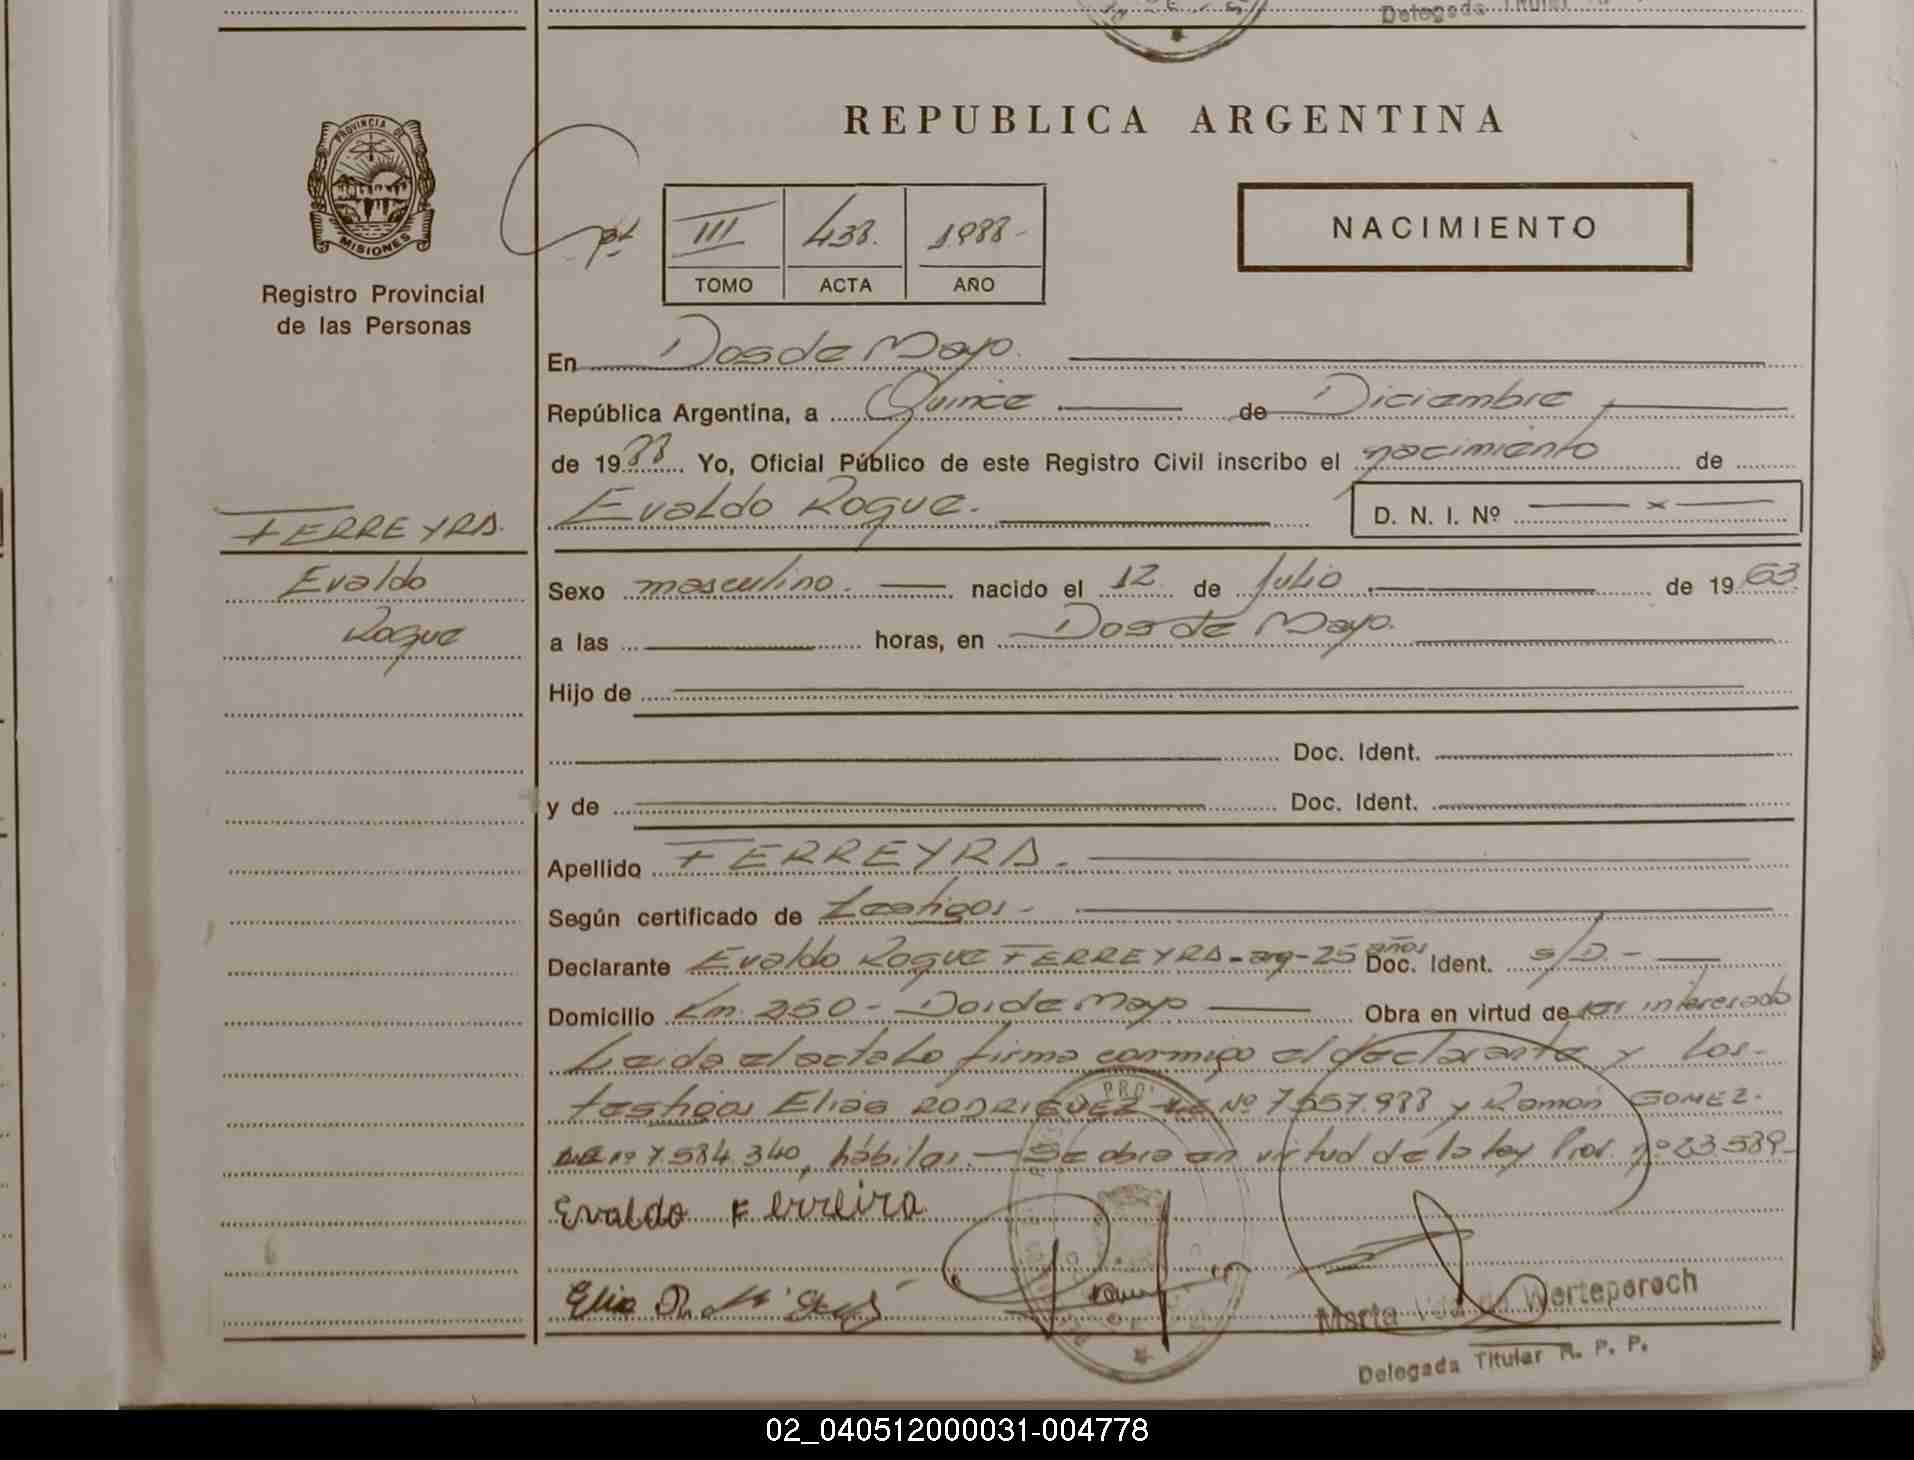 Delegada Titular
PROVINCIA DE
MISIONES
Registro Provincial
de las Personas
REPUBLICA ARGENTINA
III 438. 1988-
TOMO ACTA AÑO
NACIMIENTO
En Dos de Mayo.
República Argentina, a Quince de Diciembre
de 1988 Yo, Oficial Público de este Registro Civil inscribo el nacimiento de
Evaldo Roque. D. N. I. Nº x
FERREYRA.
Evaldo
Roque
Sexo masculino. nacido el 12 de Julio de 1963
a las horas, en Dos de Mayo.
Hijo de
Doc. Ident.
y de Doc. Ident.
Apellido FERREYRA.
Según certificado de testigos-
Declarante Evaldo Roque FERREYRA-arg-25 años Doc. Ident. s/D.-
Domicilio Km. 250- Dos de Mayo Obra en virtud de ser interesado
Leida el acta La firma conmigo el declarante y Los-
testigos Elias RODRIGUEZ Nº 7.557.988 y Ramon GOMEZ.
nº 7.584.340, hábiles.- Se obra en virtud de la Ley Prov. nº 23.589-
Evaldo Ferreira
Elia
Marta Vda de Werteperoch
Delegada Titular R. P. P.
02_040512000031-004778